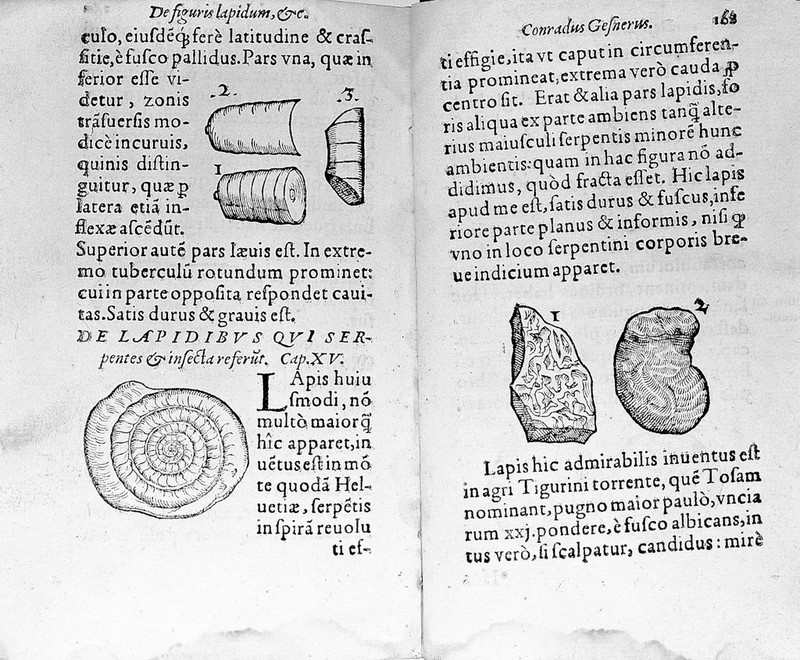 De figuris lapidum, &c.
culo, eiusdẽq́; ferè latitudine & cras-
sitie, è fusco pallidus. Pars vna, quæ in
ferior esse vi-
detur, zonis
trãsuersis mo-
dicè incuruis,
quinis distin-
guitur, quæ ꝑ
latera etiã in-
flexæ ascẽdũt.
.2.
.3.
1
Superior autẽ pars læuis est. In extre-
mo tuberculũ rotundum prominet:
cui in parte opposita respondet caui-
tas. Satis durus & grauis est.
DE LAPIDIBVS QVI SER-
pentes & insecta referũt. Cap. XV.
LApis huiu
smodi, nõ
multò maior q̃
hîc apparet, in
uẽtus est in mõ
te quodã Hel-
uetiæ, serpẽtis
in spirã reuolu
ti ef-
Conradus Gesnerus.
168
ti effigie, ita vt caput in circumferen-
tia promineat, extrema verò cauda ꝓ
centro sit. Erat & alia pars lapidis, fo
ris aliqua ex parte ambiens tanq̃ alte-
rius maiusculi serpentis minorẽ hunc
ambientis: quam in hac figura nõ ad-
didimus, quòd fracta esset. Hic lapis
apud me est, satis durus & fuscus, infe
riore parte planus & informis, nisi ꝙ
vno in loco serpentini corporis bre-
ue indicium apparet.
1
2
Lapis hic admirabilis inuentus est
in agri Tigurini torrente, quẽ Tosam
nominant, pugno maior paulò, vncia
rum xxj. pondere, è fusco albicans, in
tus verò, si scalpatur, candidus: mirè